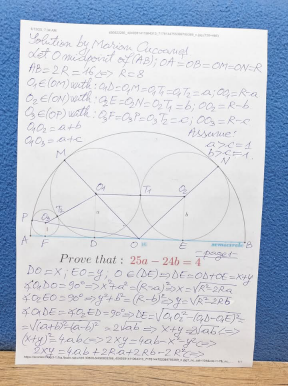 Solution by Marian Cucoaneş
Let O midpoint of (AB); OA=OB=OM=ON=R
AB=2R=16 ⟺ R=8
O₁∈(OM) with: O₁D=O₁M=O₁T₁=O₁T₂=a; OO₁=R-a
O₂∈(ON) with: O₂E=O₂N=O₂T₁=b; OO₂=R-b
O₃∈(OP) with: O₃F=O₃P=O₃T₂=c; OO₃=R-c
O₁O₂=a+b
O₁O₃=a+c
Assume:
a>c=1
b>c=1
M
N
O₁
T₁
O₂
P
O₃
T₂
A
F
D
O
E
semicircle
B
Prove that : 25a − 24b = 4
DO=x; EO=y; O∈(DE) ⟹ DE=OD+OE=x+y
∢O₁DO=90° ⟹ x²+a²=(R-a)² ⟹ x²=R²-2Ra
∢O₂EO=90° ⟹ y²+b²=(R-b)² ⟹ y²=R²-2Rb
∢O₁DE=∢O₂ED=90° ⟹ DE=√(O₁O₂²-(O₁D-O₂E)²)=
=√((a+b)²-(a-b)²) = 2√ab ⟹ x+y=2√ab ⟺
(x+y)²=4ab ⟺ 2xy=4ab-x²-y² ⟺
2xy=4ab+2Ra+2Rb-2R² ⟺